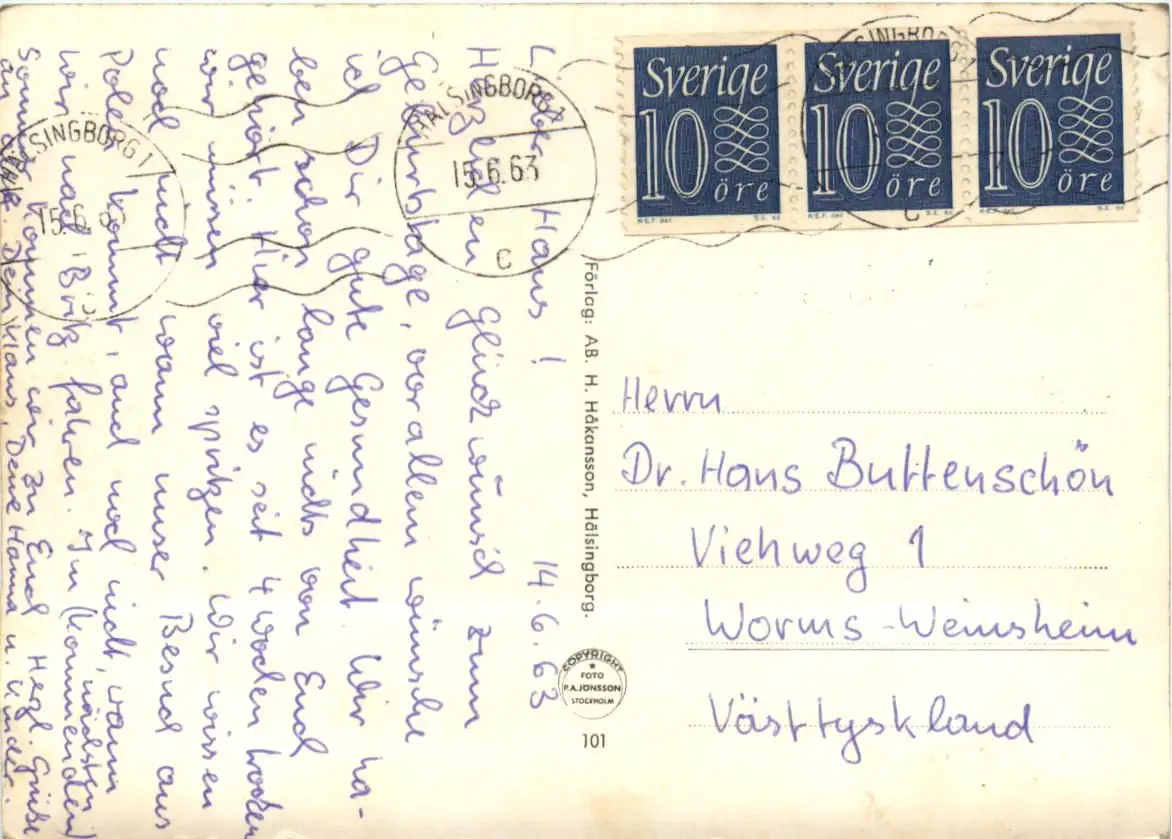 Lieber Hans! 14.6.63
Herzlichen Glückwünsch zum
Geburtstage, vor allem wünsche
ich Dir gute Gesundheit. Wir ha-
ben schon lange nichts von Euch
gehört. Hier ist es seit 4 Wochen trocken
wir müssen viel spritzen. Wir wissen
noch nicht wann unser Besuch aus
Polen kommt, und noch nicht, wann
wir nach fahren. Im (kommenden) nächsten
Sommer kommen wir zu Euch Herzl. Grüße
Dein Klaus, Deine Hanna u. Kinder.
Sverige
10
öre
Sverige
10
öre
Sverige
10
öre
HÄLSINGBORG 1
15.6.63
C
HÄLSINGBORG 1
15.6.6
HÄLSINGBORG
C
Förlag: AB. H. Håkansson, Hälsingborg.
COPYRIGHT
FOTO
P.A.JÖNSSON
STOCKHOLM
101
Herrn
Dr. Hans Buttenschön
Viehweg 1
Worms-Weinsheim
Västtyskland